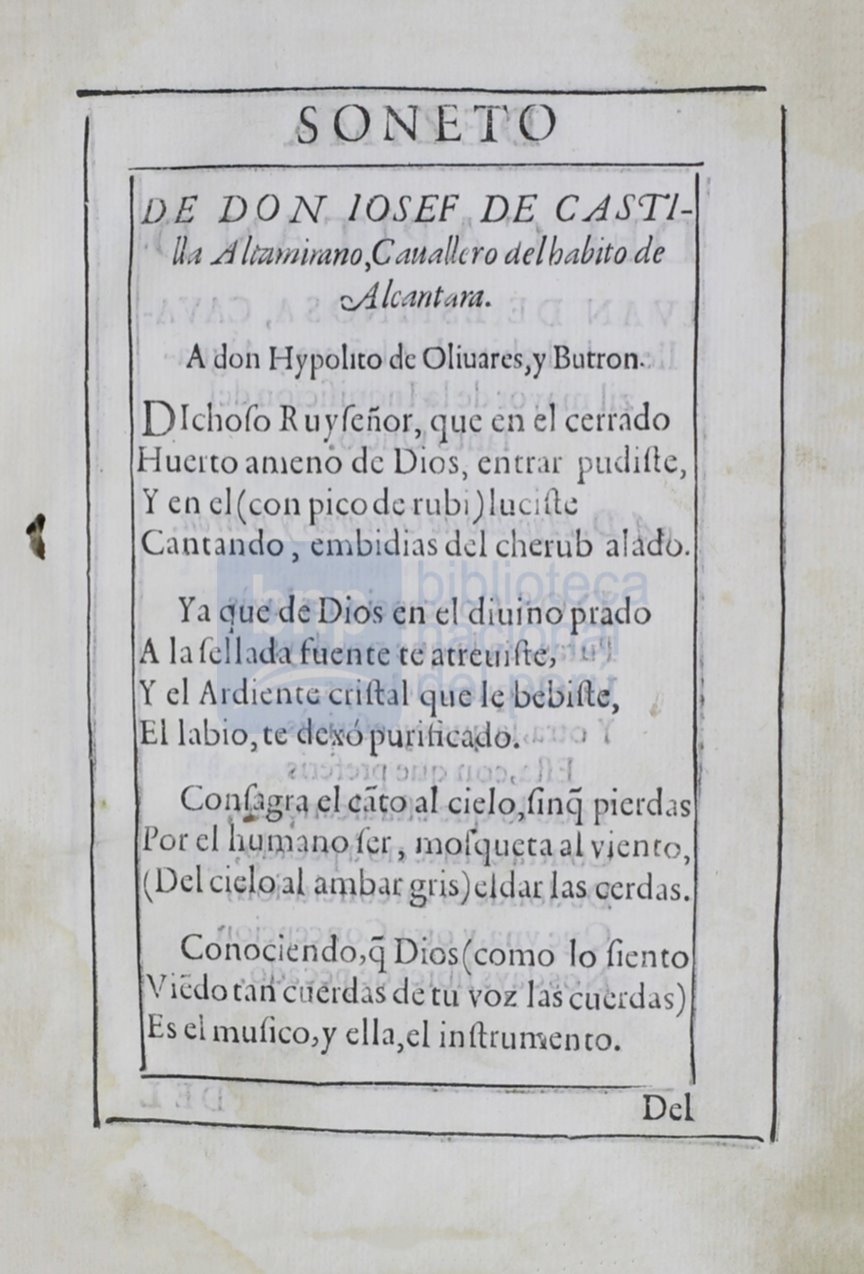 SONETO
DE DON IOSEF DE CASTI-
lla Altamirano, Cauallero del habito de
Alcantara.
A don Hypolito de Oliuares, y Butron.
DIchoſo Ruyſeñor, que en el cerrado
Huerto ameno de Dios, entrar pudiſte,
Y en el (con pico de rubi) luciſte
Cantando, embidias del cherub alado.
Ya que de Dios en el diuino prado
A la ſellada fuente te atreuiſte,
Y el Ardiente criſtal que le bebiſte,
El labio, te dexó purificado.
Conſagra el cãto al cielo, ſinq̃ pierdas
Por el humano ſer, moſqueta al viento,
(Del cielo al ambar gris) el dar las cerdas.
Conociendo, q̃ Dios (como lo ſiento
Viẽdo tan cuerdas de tu voz las cuerdas)
Es el muſico, y ella, el inſtrumento.
Del
bnp biblioteca
nacional
del perú